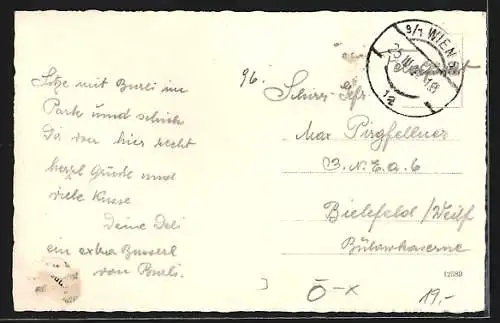 Sitze mit Burli im
Park und schick
Dir von hier recht
herzl Grüße und
viele Küsse
Deine Deli
ein extra Busserl
von Burli.
96.
9/1 WIEN
25 III
12
Feldpost
Schirr-Gefr.
Max Pirgfellner
3. N. E. a. 6
Bielefeld /Westf
Bülowkaserne
12589
Ö-x
19,-